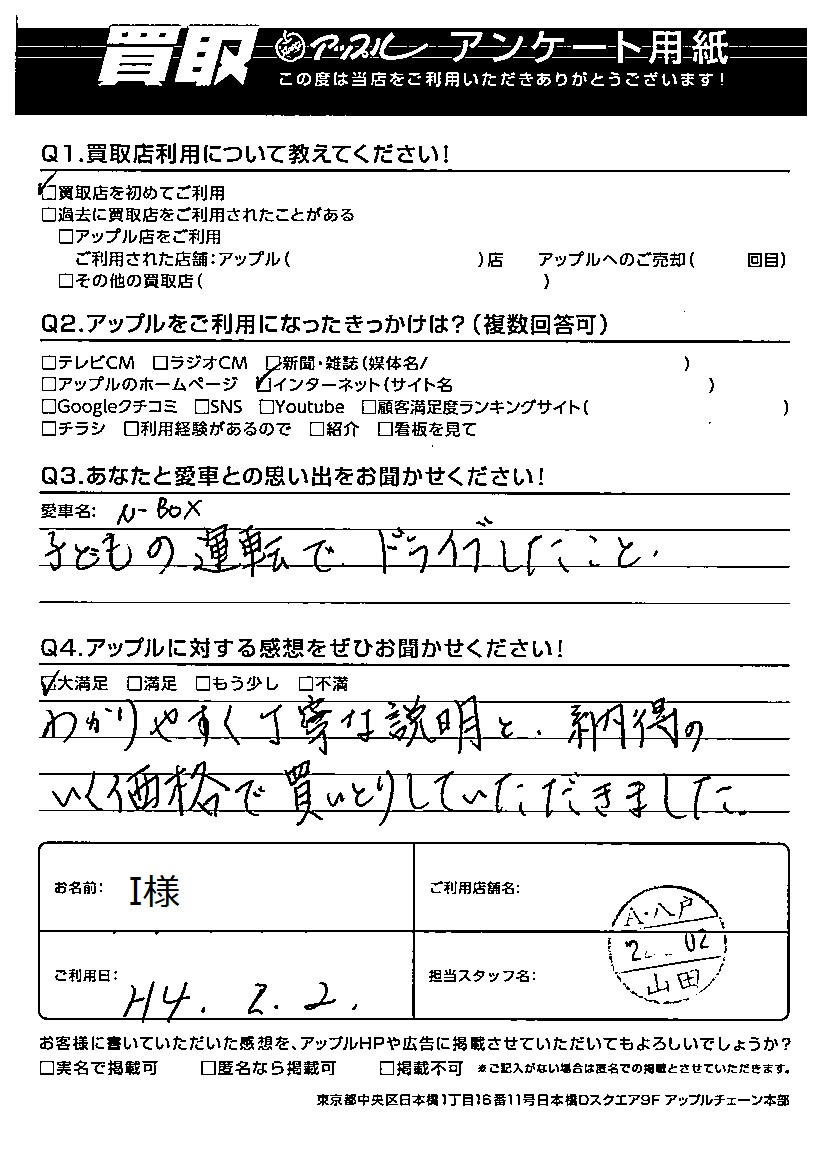 買取 アップル アンケート用紙
この度は当店をご利用いただきありがとうございます！
Q1.買取店利用について教えてください！
☑買取店を初めてご利用
□過去に買取店をご利用されたことがある
□アップル店をご利用
ご利用された店舗：アップル（ ）店 アップルへのご売却（ 回目）
□その他の買取店（ ）
Q2.アップルをご利用になったきっかけは？（複数回答可）
□テレビCM □ラジオCM □新聞・雑誌（媒体名/ ）
□アップルのホームページ ☑インターネット（サイト名 ）
□Googleクチコミ □SNS □Youtube □顧客満足度ランキングサイト（ ）
□チラシ □利用経験があるので □紹介 □看板を見て
Q3.あなたと愛車との思い出をお聞かせください！
愛車名： N-BOX
子どもの運転で ドライブしたこと.
Q4.アップルに対する感想をぜひお聞かせください！
☑大満足 □満足 □もう少し □不満
わかりやすく丁寧な説明と、納得の
いく価格で買いとりしていただきました。
お名前： I様
ご利用店舗名：
A・八戸
2. 02
山田
ご利用日： H4. 2. 2.
担当スタッフ名：
お客様に書いていただいた感想を、アップルHPや広告に掲載させていただいてもよろしいでしょうか？
□実名で掲載可 □匿名なら掲載可 □掲載不可 ※ご記入がない場合は匿名での掲載とさせていただきます。
東京都中央区日本橋1丁目16番11号日本橋Dスクエア9F アップルチェーン本部